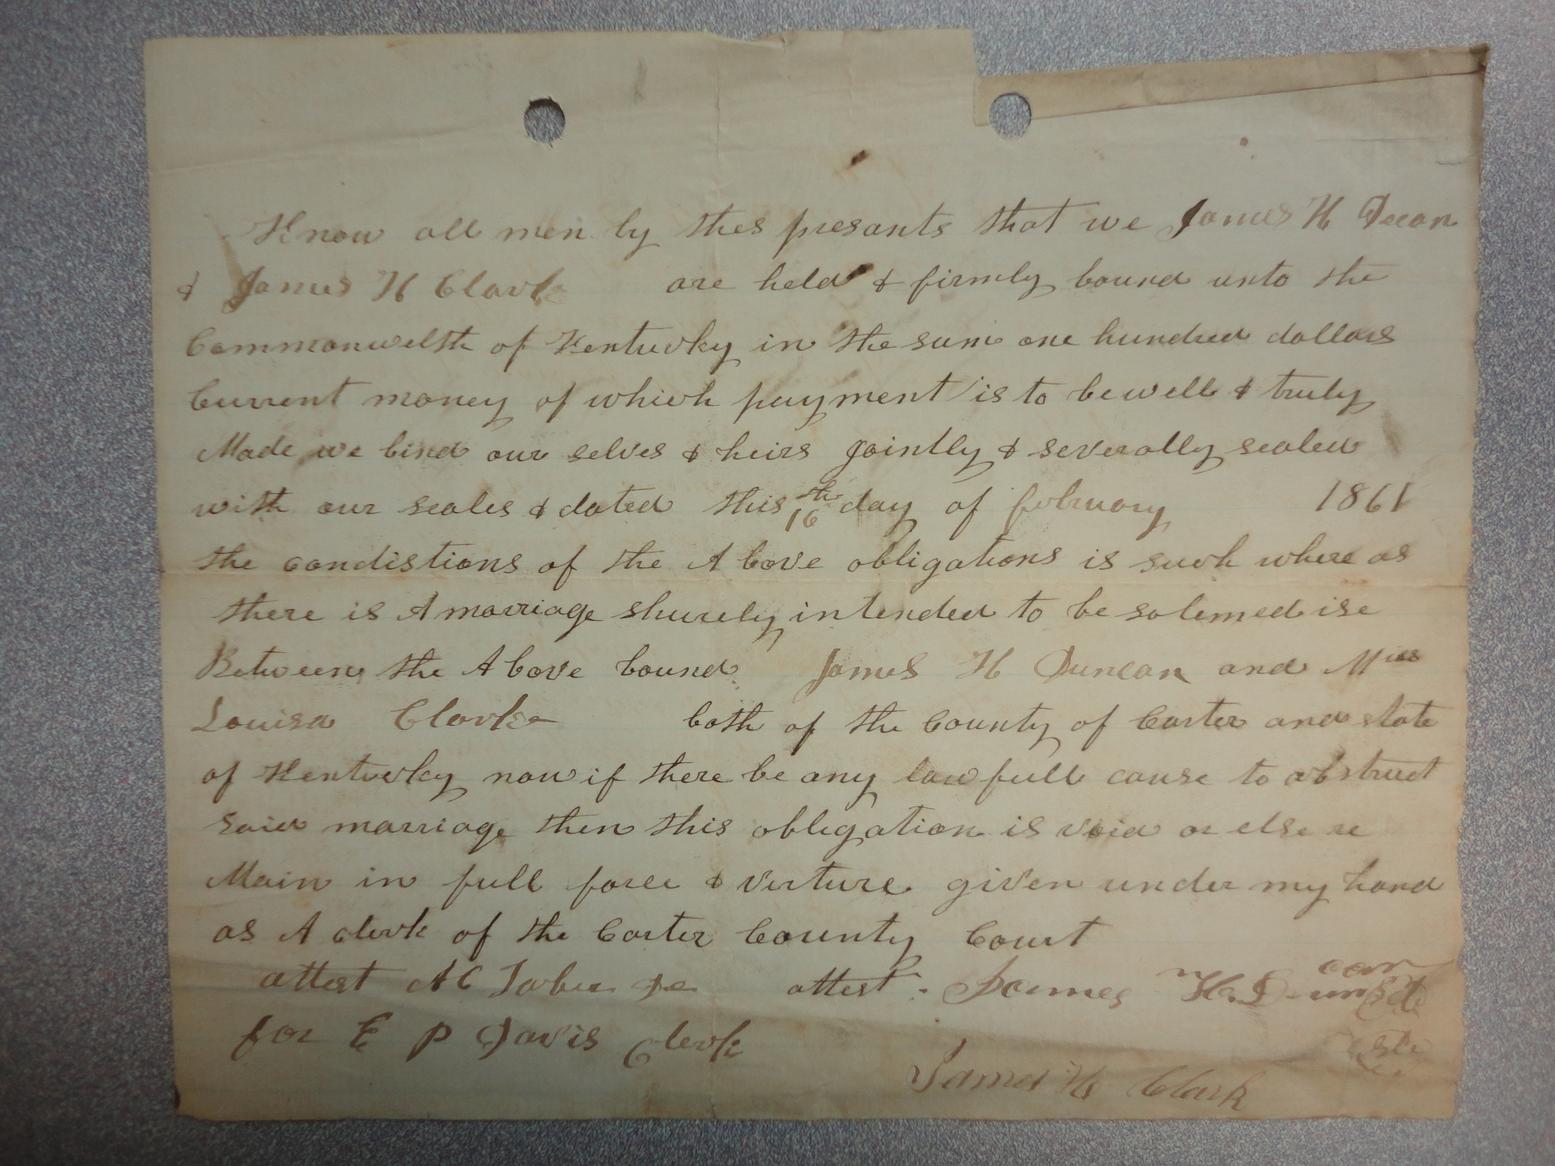 Know all men by thes presants that we James H Decan
& James H Clarke are held & firmly bound unto the
Commonwelth of Kentucky in the sum one hundred dollars
Current money of which payment is to be well & truly
Made we bind our selves & heirs jointly & severally sealed
with our seales & dated this 16th day of february 1861
the condistions of the A bove obligations is such where as
there is A marriage shurely intended to be solemed ise
Between the A bove bound James H Duncan and Miss
Louisa Clarke both of the County of Carter and state
of Kentucky now if there be any lawfull cause to obstruct
said marriage then this obligation is void or else re
Main in full force & verture given under my hand
as A clerk of the Carter County Court
attest A C attest James H. Duncan
for E P Davis Clerk
James H Clark